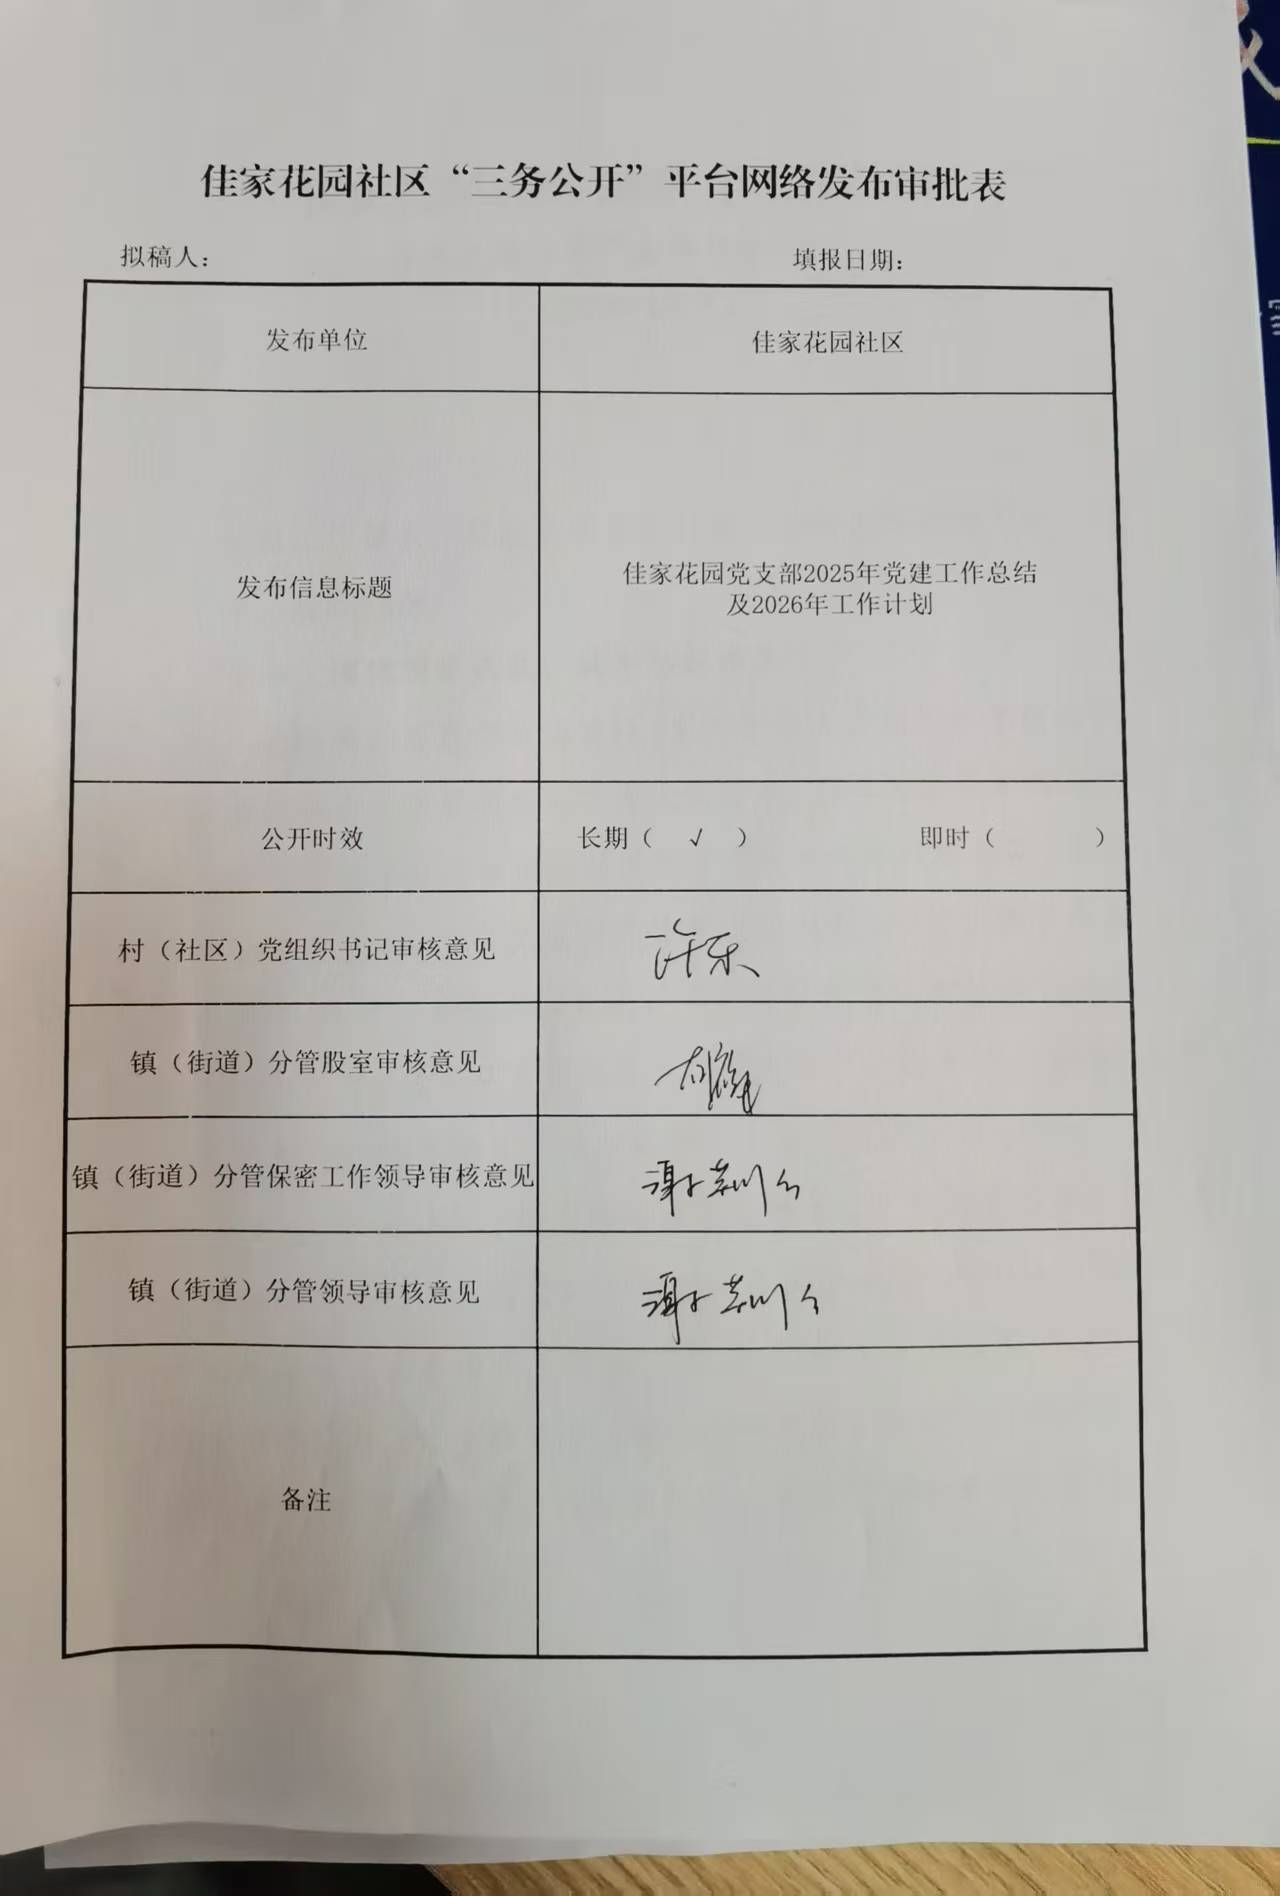 佳家花园社区“三务公开”平台网络发布审批表
拟稿人： 填报日期：
发布单位 佳家花园社区
发布信息标题 佳家花园党支部2025年党建工作总结
及2026年工作计划
公开时效 长期（ √ ） 即时（ ）
村（社区）党组织书记审核意见 许东
镇（街道）分管股室审核意见
镇（街道）分管保密工作领导审核意见 谢
镇（街道）分管领导审核意见 谢
备注